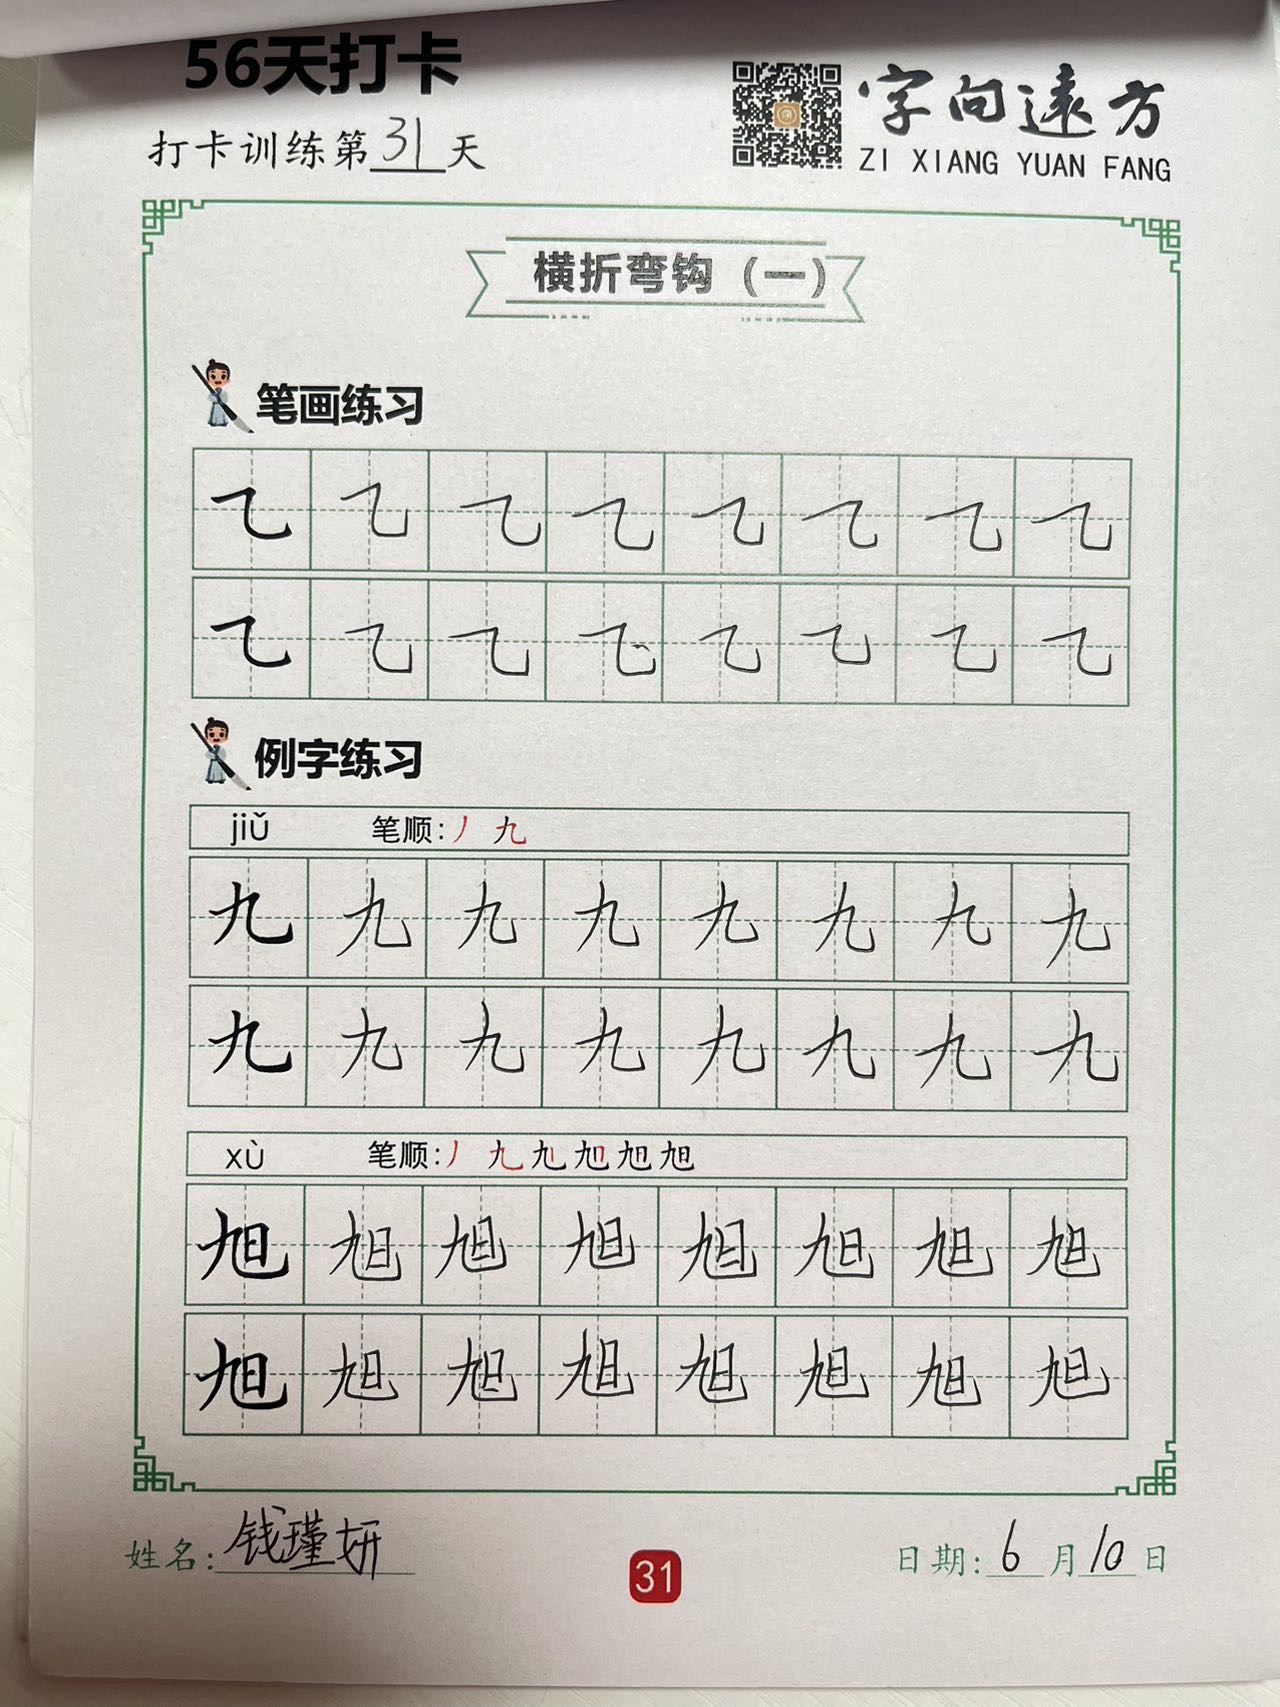 56天打卡
打卡训练第31天
字向远方
ZI XIANG YUAN FANG
横折弯钩（一）
笔画练习
㇈ ㇈ ㇈ ㇈ ㇈ ㇈ ㇈ ㇈
㇈ ㇈ ㇈ ㇈ ㇈ ㇈ ㇈ ㇈
例字练习
jiǔ 笔顺:丿 九
九 九 九 九 九 九 九 九
九 九 九 九 九 九 九 九
xù 笔顺:丿 九 旭 旭 旭 旭
旭 旭 旭 旭 旭 旭 旭 旭
旭 旭 旭 旭 旭 旭 旭 旭
姓名:钱瑾妍
31
日期:6月10日